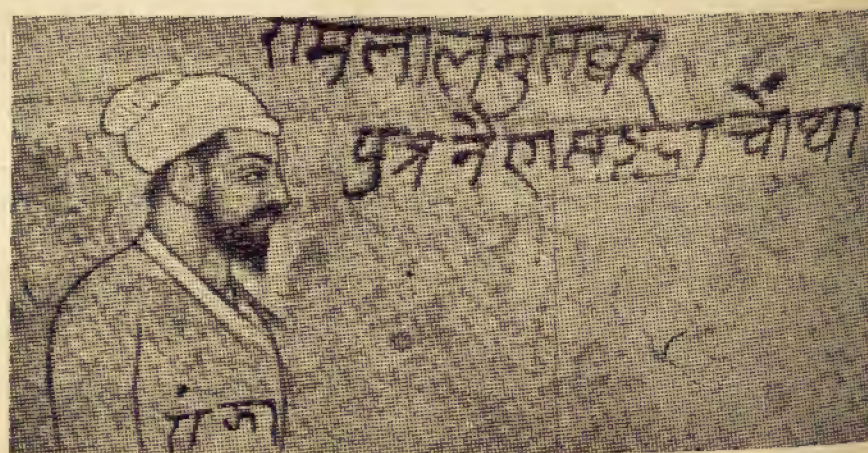 रामलाल मुसवर
पुत्र नैणसुखदा चौथा